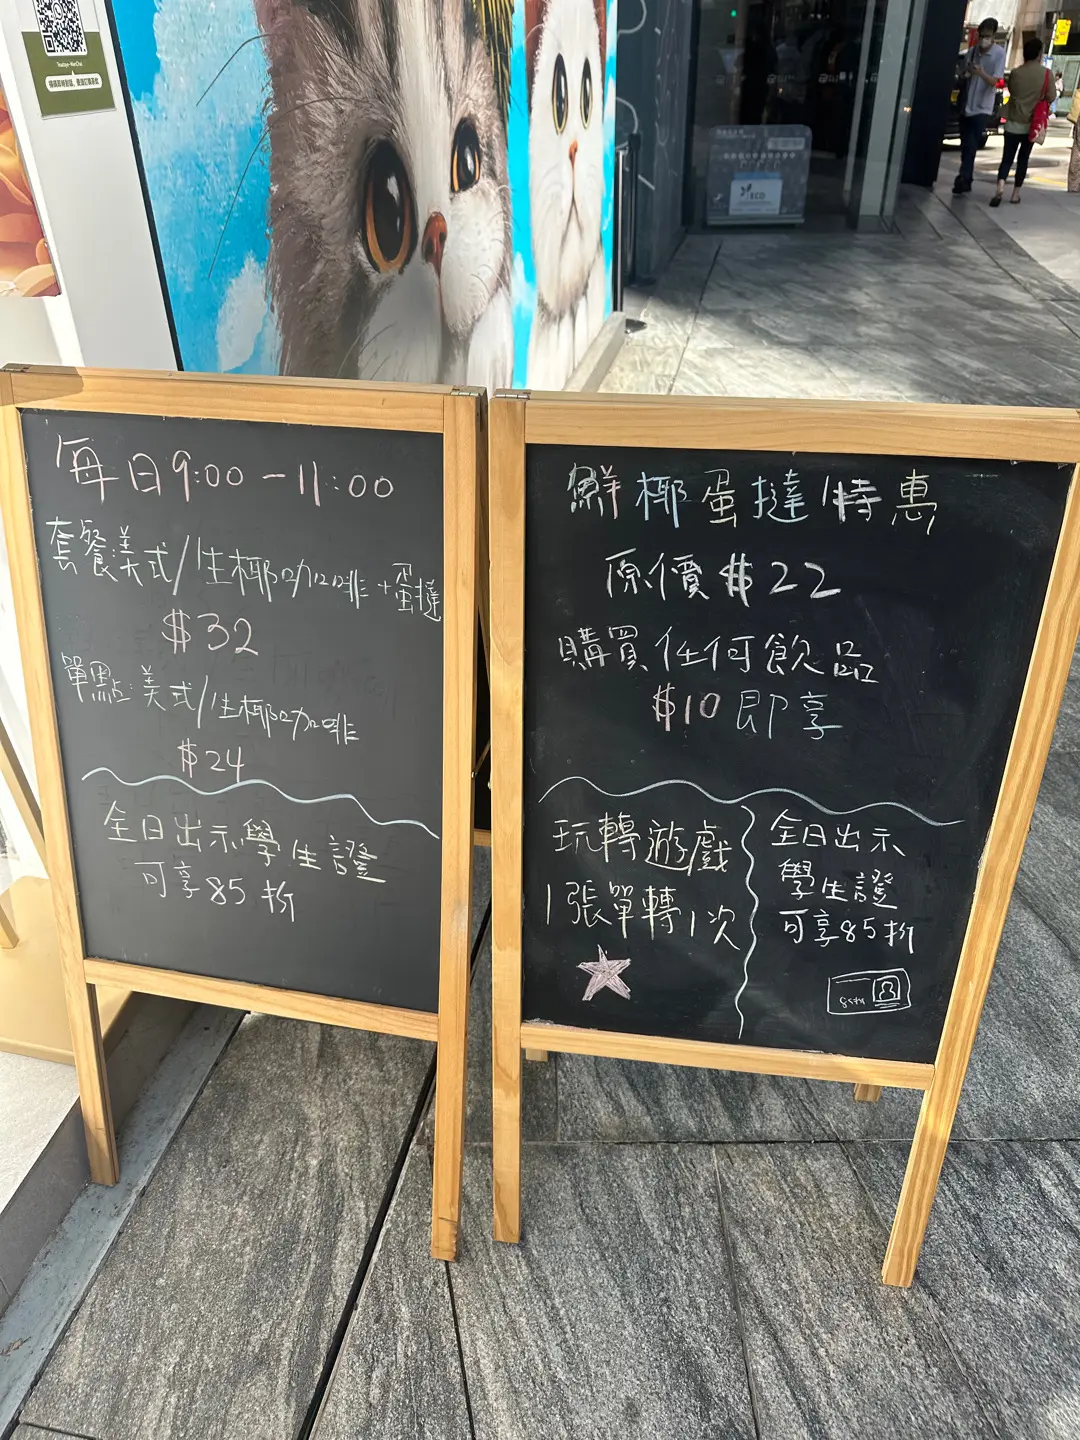 每日9:00-11:00
套餐美式/生椰咖啡+蛋撻
$32
單點:美式/生椰咖啡
$24
全日出示學生證
可享85折
鮮椰蛋撻特惠
原價$22
購買任何飲品
$10即享
玩轉遊戲
1張單轉1次
全日出示
學生證
可享85折
ECO